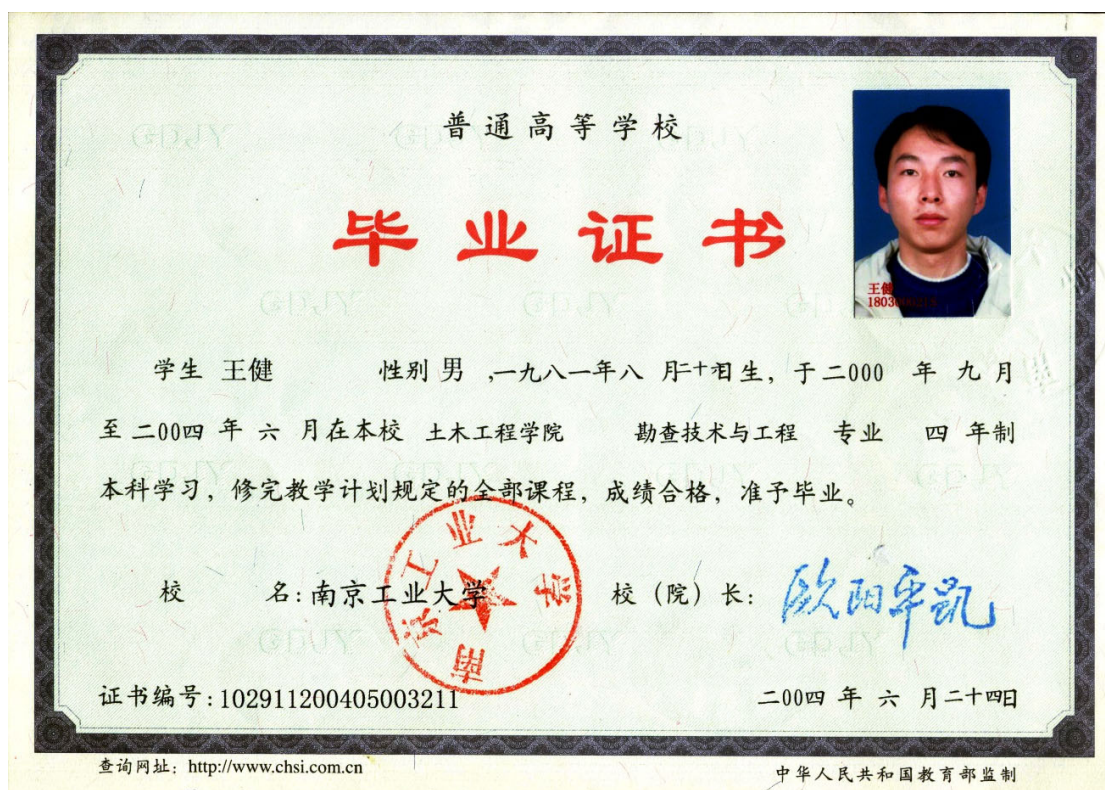 普通高等学校
毕业证书
王健
学生 王健 性别 男 ,一九八一年八 月二十 日生，于二000 年 九 月
至 二00四 年 六 月在本校 土木工程学院 勘查技术与工程 专业 四 年制
本科学习，修完教学计划规定的全部课程，成绩合格，准予毕业。
校 名:南京工业大学 校（院）长: 欧阳平凯
南京工业大学
证书编号:102911200405003211 二00四 年 六 月二十四日
查询网址: http://www.chsi.com.cn 中华人民共和国教育部监制